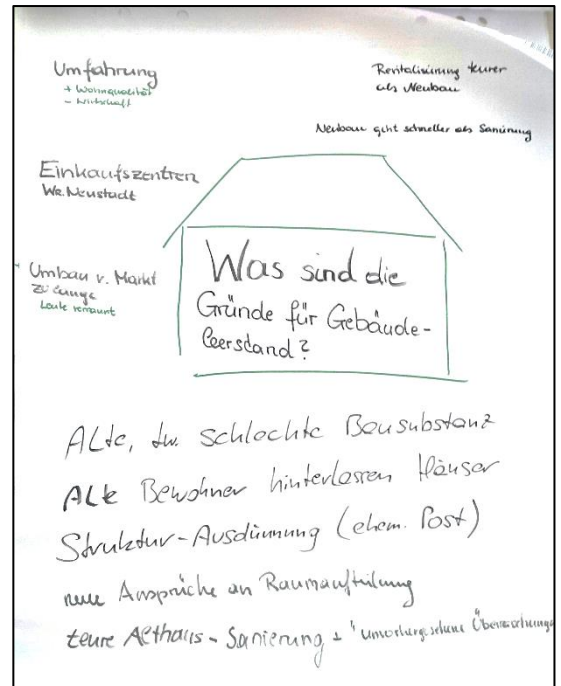 Umfahrung
+ Wohnqualität
- Wirtschaft
Revitalisierung teurer
als Neubau
Neubau geht schneller als Sanierung
Einkaufszentren
Wr. Neustadt
Umbau v. Markt
zu lange
Leute versaumt
Was sind die
Gründe für Gebäude-
leerstand?
Alte, tw. schlechte Bausubstanz
Alte Bewohner hinterlassen Häuser
Struktur-Ausdünnung (ehem. Post)
neue Ansprüche an Raumaufteilung
teure Althaus-Sanierung + "unvorhergesehene Überraschunge